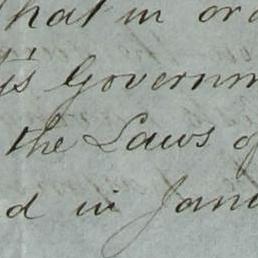 that in or
's Governm
the Laws of
d in Jan